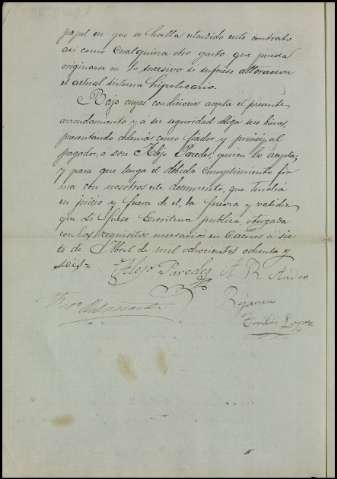 papel en que se halla estendido este contrato
así como cualquiera otro gasto que pueda
originarse en lo sucesivo si sufriese alteracion
el actual sistema hipotecario.
Bajo cuyas condiciones acepta el presente
arrendamiento y a su seguridad obliga sus bienes
presentando además como fiador y principal
pagador, a Don Alejo Paredes, quien lo acepta;
y para que tenga el debido cumplimiento firma
con nosotros este documento, que tendrá
en juicio y fuera de el, la fuerza y validez
que si fuese Escritura publica otorgada
con los requisitos necesarios en Cáceres a siete
de Abril de mil ochocientos ochenta y
seis.
Alejo Paredes A R
Emilio Lopez